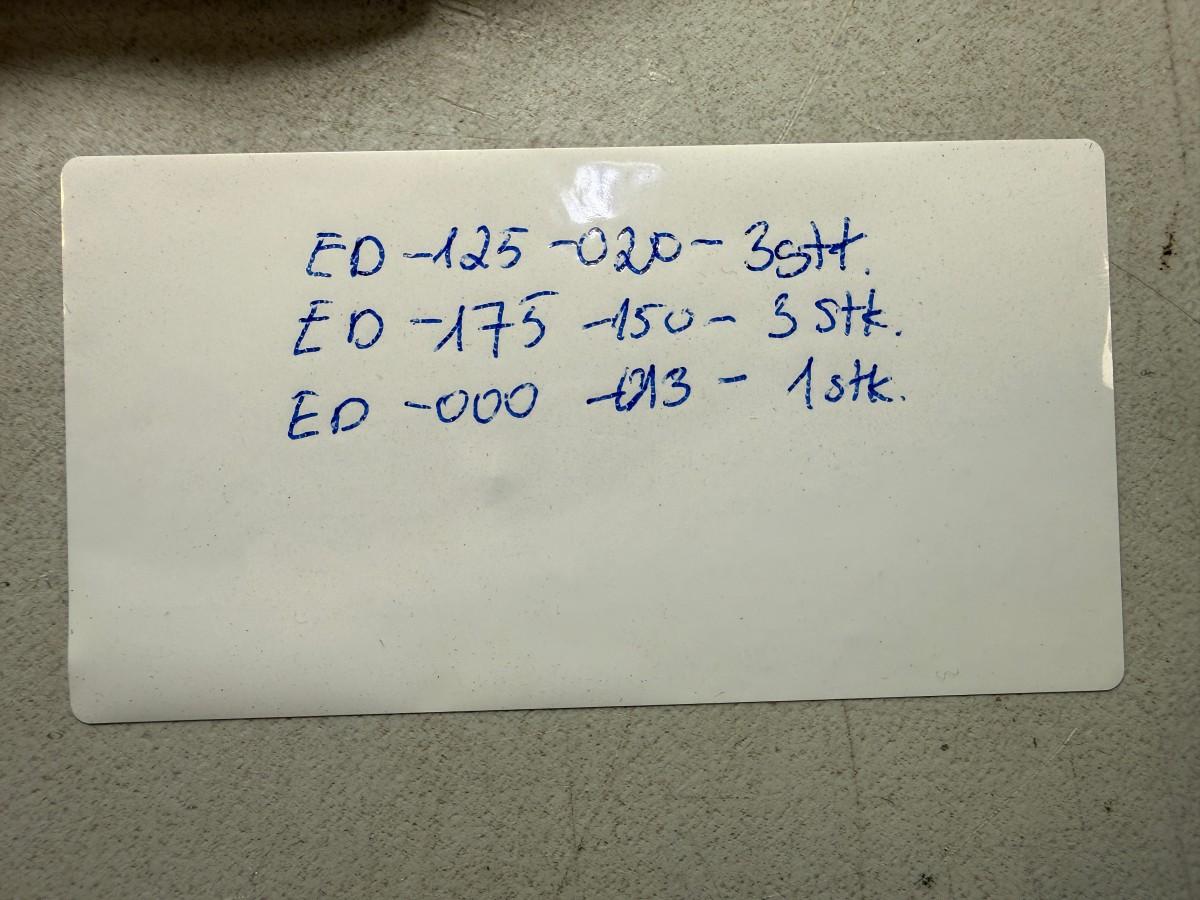 ED -125 -020 - 3 stk.
ED -175 -150 - 3 Stk.
ED -000 -013 - 1 stk.